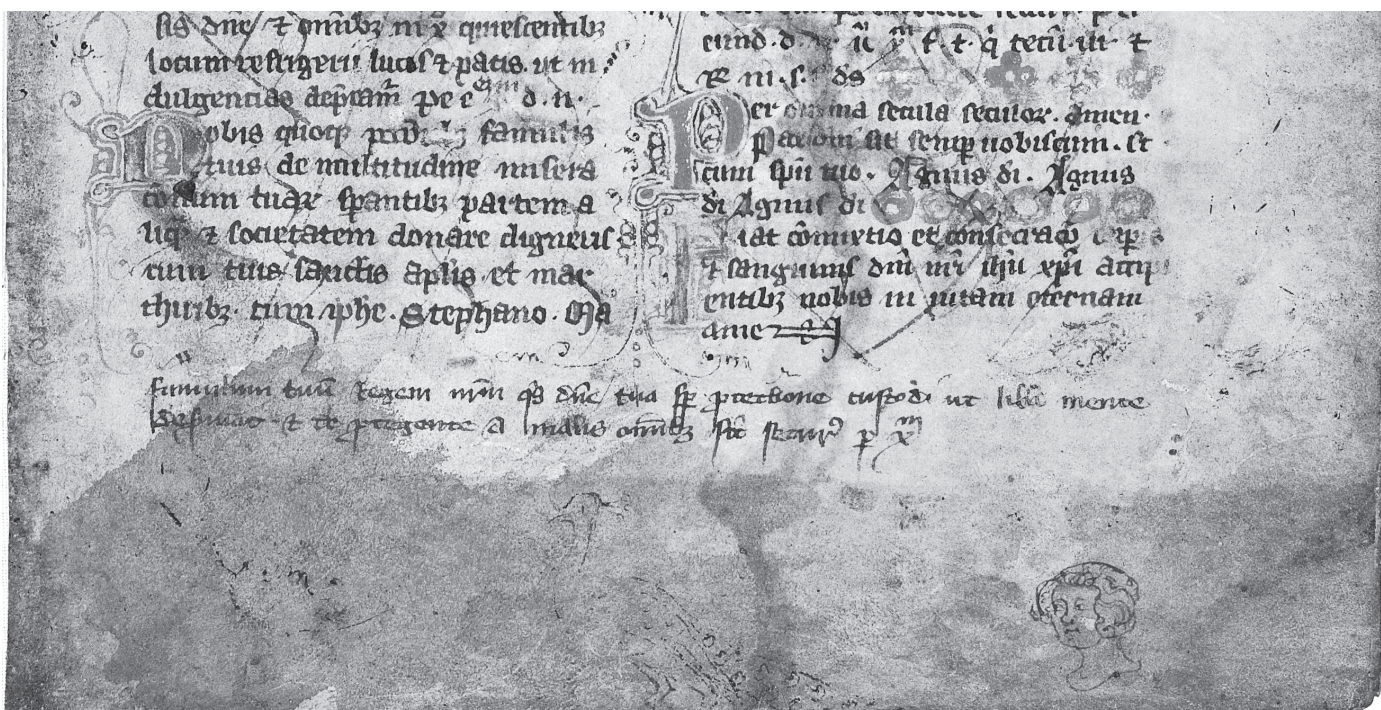 sis dñe / & om̃ibꝫ in x̃ quiescentibꝫ
locum refrigerii lucis & pacis. ut in
dulgentias dep̃cam̃ pe e d. n.
Nobis quoqꝫ famulis
tuis de multitudine misera
tuaꝝ sp̃antibꝫ partem a
liq̃ & societatem donare digneris
cum tuis sanctis ap̃lis et mar
thiribꝫ. cum iohe. Stephano. Ma
eiusd. d. t. q̇ tecũ. ui. &
re in. s. ds
Per omnia secula seculoꝝ. amen.
Pax dom̃i sit semp̱ uobiscum. Et
cum sp̃u tuo. Agnus di. Agnus
di Agnus di
Fiat cõmixtio et consecracõ corp̱
& sanguinis dñi nr̃i ih̃u xp̃i accip
entibꝫ nobis in uitam eternam
amen
famulum tuũ Regem nr̃m q̃s dñe / tua sp̱ ꝓtectione custodi ut lib̃a mente
& te ꝓtegente a malis om̃ibꝫ sit securꝰ p̱ x̃m